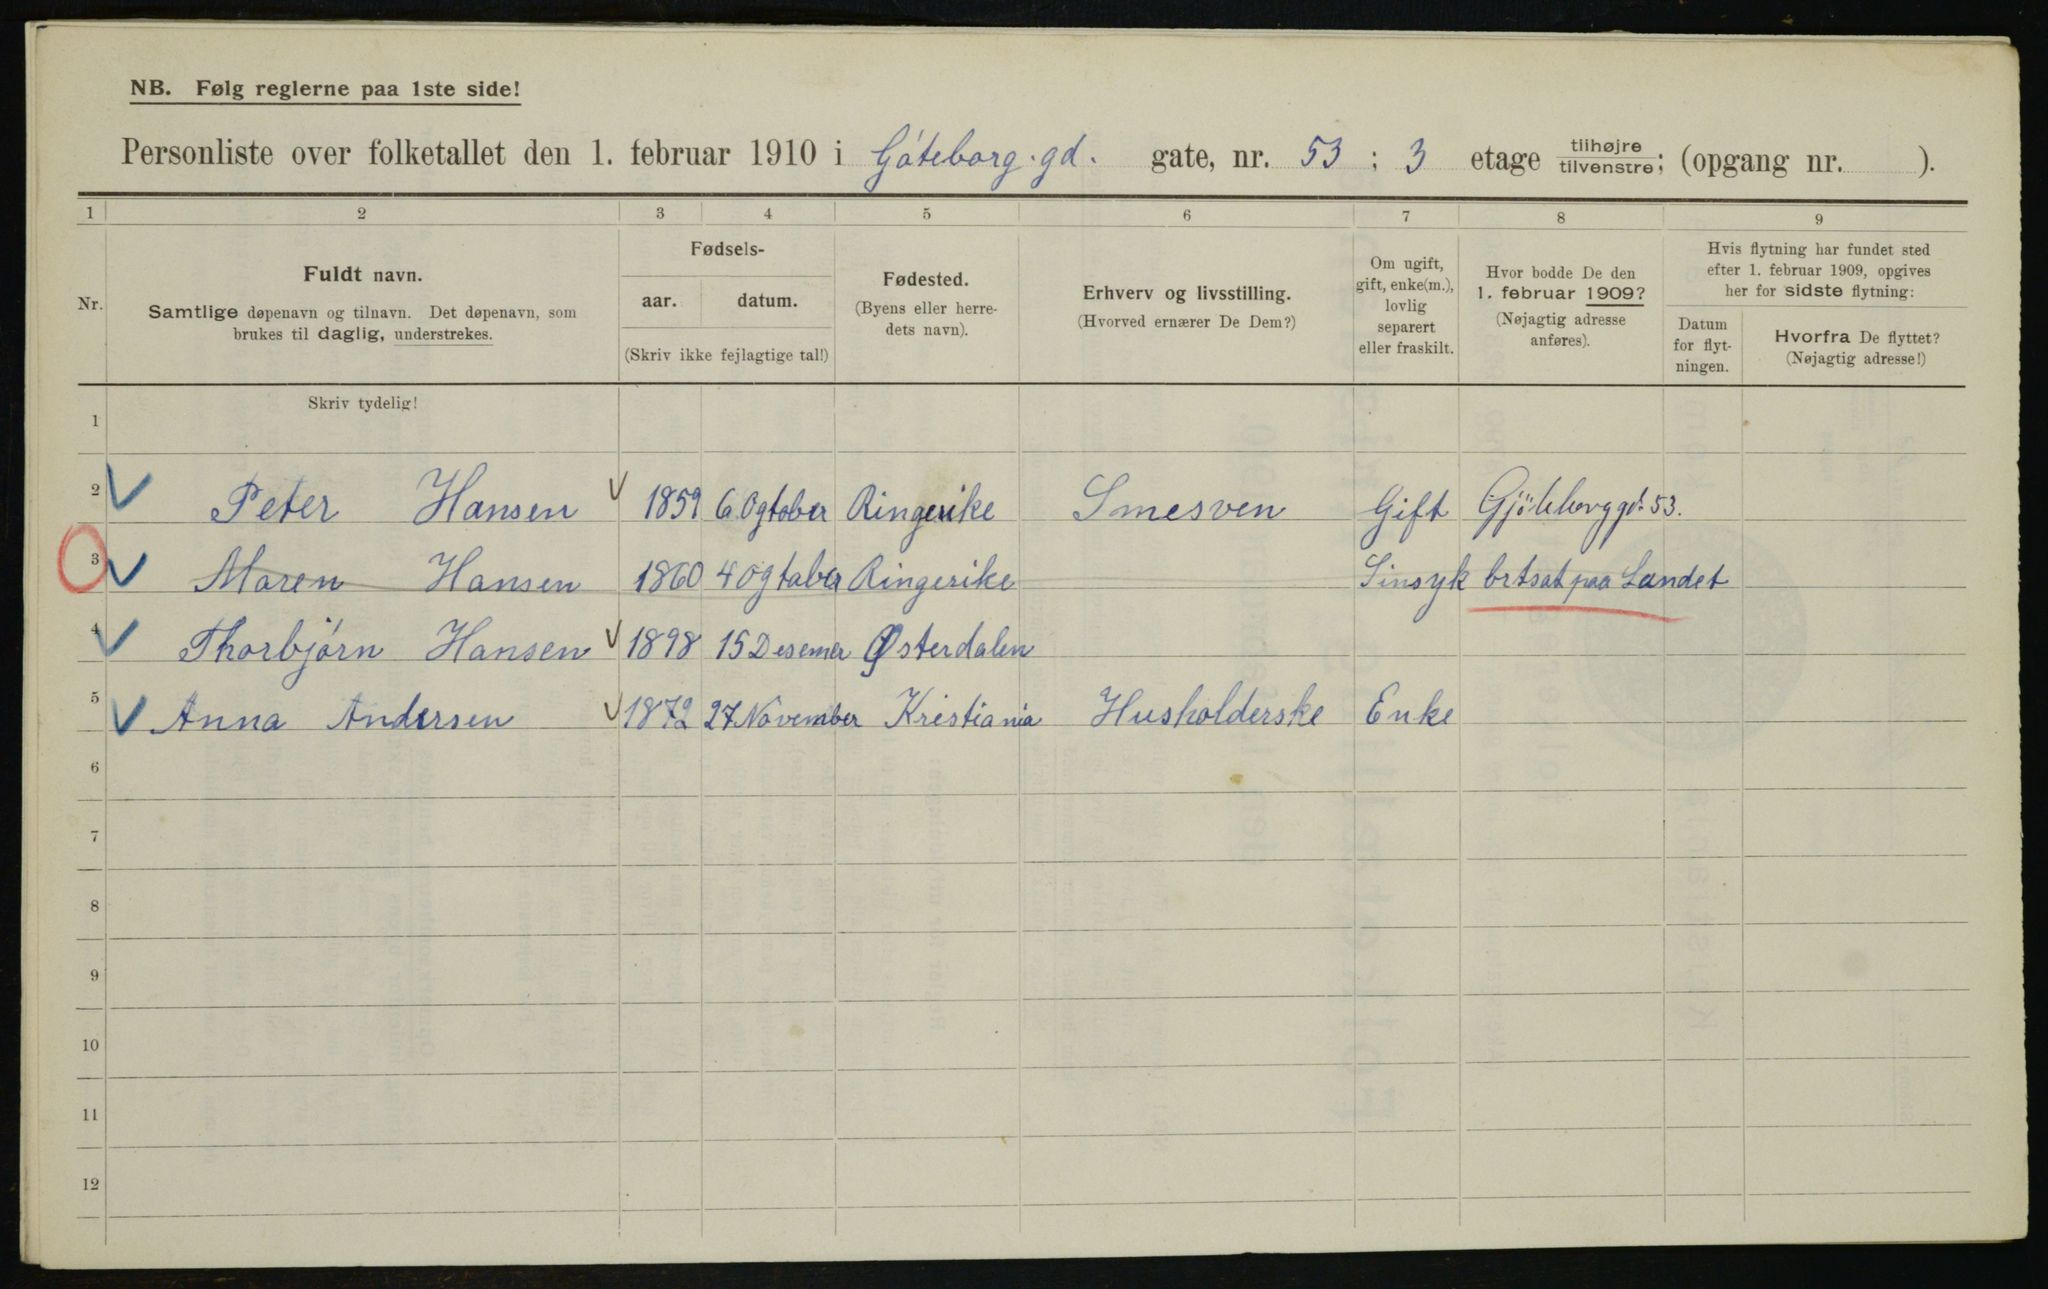 NB. Følg reglerne paa 1ste side!
Personliste over folketallet den 1. februar 1910 i Göteborg.gd. gate, nr. 53 ; 3 etage tilhøjre tilvenstre; (opgang nr. ).
1 2 3 4 5 6 7 8 9
Nr.
Fuldt navn.
Samtlige døpenavn og tilnavn. Det døpenavn, som
brukes til daglig, understrekes.
Fødsels-
aar. datum.
(Skriv ikke fejlagtige tal!)
Fødested.
(Byens eller herre-
dets navn).
Erhverv og livsstilling.
(Hvorved ernærer De Dem?)
Om ugift,
gift, enke(m.),
lovlig
separert
eller fraskilt.
Hvor bodde De den
1. februar 1909?
(Nøjagtig adresse
anføres).
Hvis flytning har fundet sted
efter 1. februar 1909, opgives
her for sidste flytning:
Datum
for flyt-
ningen.
Hvorfra De flyttet?
(Nøjagtig adresse!)
Skriv tydelig!
1
2 Peter Hansen 1859 6 Ogtober Ringerike Smesven Gift Gjöteborggd. 53.
3 Maren Hansen 1860 4 Ogtober Ringerike Sinsyk brtsat paa Landet
4 Thorbjörn Hansen 1898 15 Desemer Østerdalen
5 Anna Andersen 1872 27 November Kristiania Husholderske Enke
6
7
8
9
10
11
12